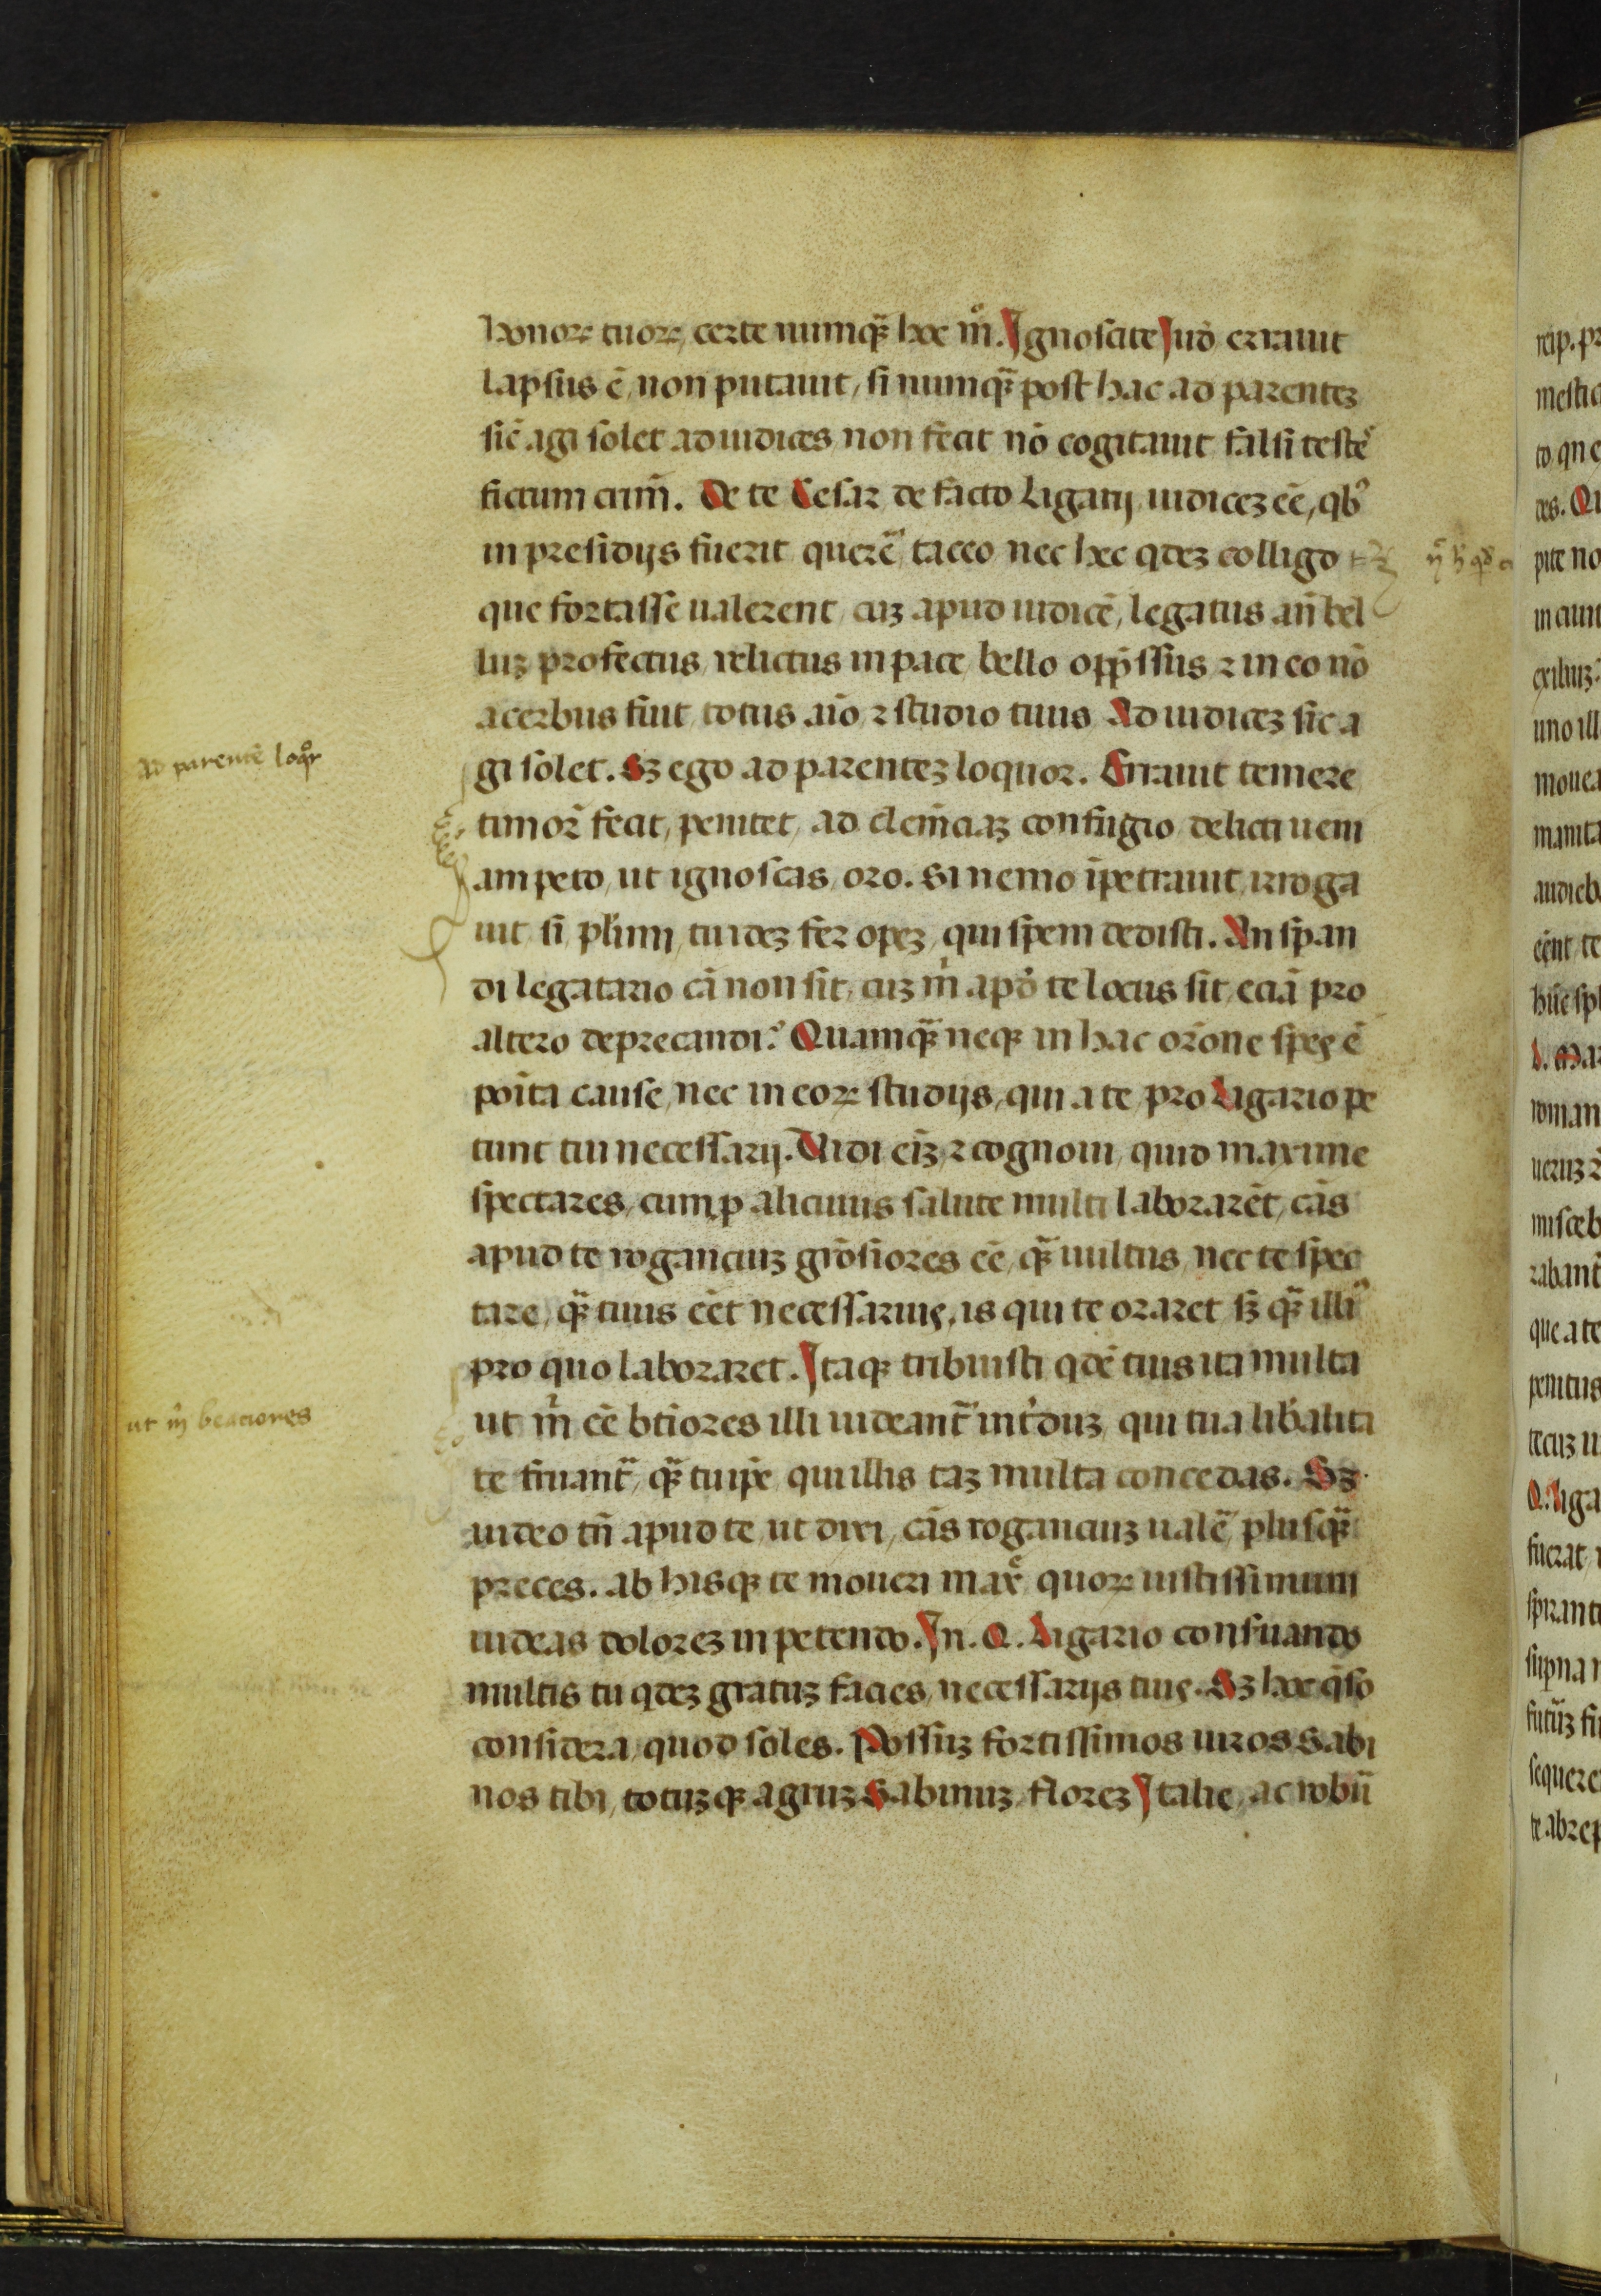 honoꝝ tuoꝝ, certe numqꝫ hoc mͦ. Ignoscite Iudͦ errauit
lapsus ē, non putauit, si numqꝫ post hac ad parentez
sic̄ agi solet ad iudices non fecit nō cogitauit falsi teste᷒
fictum crim̄. De te Cesar de facto Ligarij iudicez eē, qb᷒
in presidijs fuerit querē taceo nec hec qdez colligo
que fortasse ualerent, cuz apud iudicē, legatus an̄ bel
luz profectus, relictus in pace, bello opp̄ssus ⁊ in eo nō
acerbus fuit totus aīo ⁊ studio tuus Ad iudicez sic a
gi solet. Sz ego ad parentez loquor. Errauit temere
timor̄ fecit, penitet, ad clem̄ciaz confugio delicti ueni
am peto, ut ignoscas, oro. Si nemo īpetrauit, irroga
uit si plīmi, tu idez fer opez, qui spem dedisti. An sp̄an
di legatario cā non sit, cuz m̄ apd̄ te locus sit, eciā pro
altero deprecandi? Quamqꝫ neqꝫ in hac orōne spes ē
poīta cause, nec in eoꝝ studijs, qui a te pro Ligario pe
tunt tui necessarij. Uidi eīz, ⁊ cognoui, quid maxime
spectares, cum ꝓ alicuius salute multi laborarēt, cās
apud te rogancium grōsiores eē, qꝫ uultus, nec te spec
tare, qꝫ tuus eēt necessarius, is qui te oraret sz qꝫ illi᷒
pro quo laboraret. Itaqꝫ tribuisti qdē tuis ita multa
ut m̄ eē btīores illi uideant᷒ int̄duz, qui tua lib̄alita
te fruant᷒, qꝫ tu ip̄e, qui illis taz multa concedas. Sz
uideo tn̄ apud te, ut dixi, cās rogancium ualē plusqꝫ
preces. ab hisqꝫ te moueri maxͤ, quoꝝ iustissimum
uideas dolorez in petendo. In. Q. Ligario consuando
multis tu qdez gratuz facies, necessarijs tuis. Sz hoc qso
considera, quod soles. Possuz fortissimos uiros Sabi
nos tibi, totuzqꝫ agruz Sabinuz, florez Italie, ac robū
ad parentē loqͦr
ut m̄ beatiores